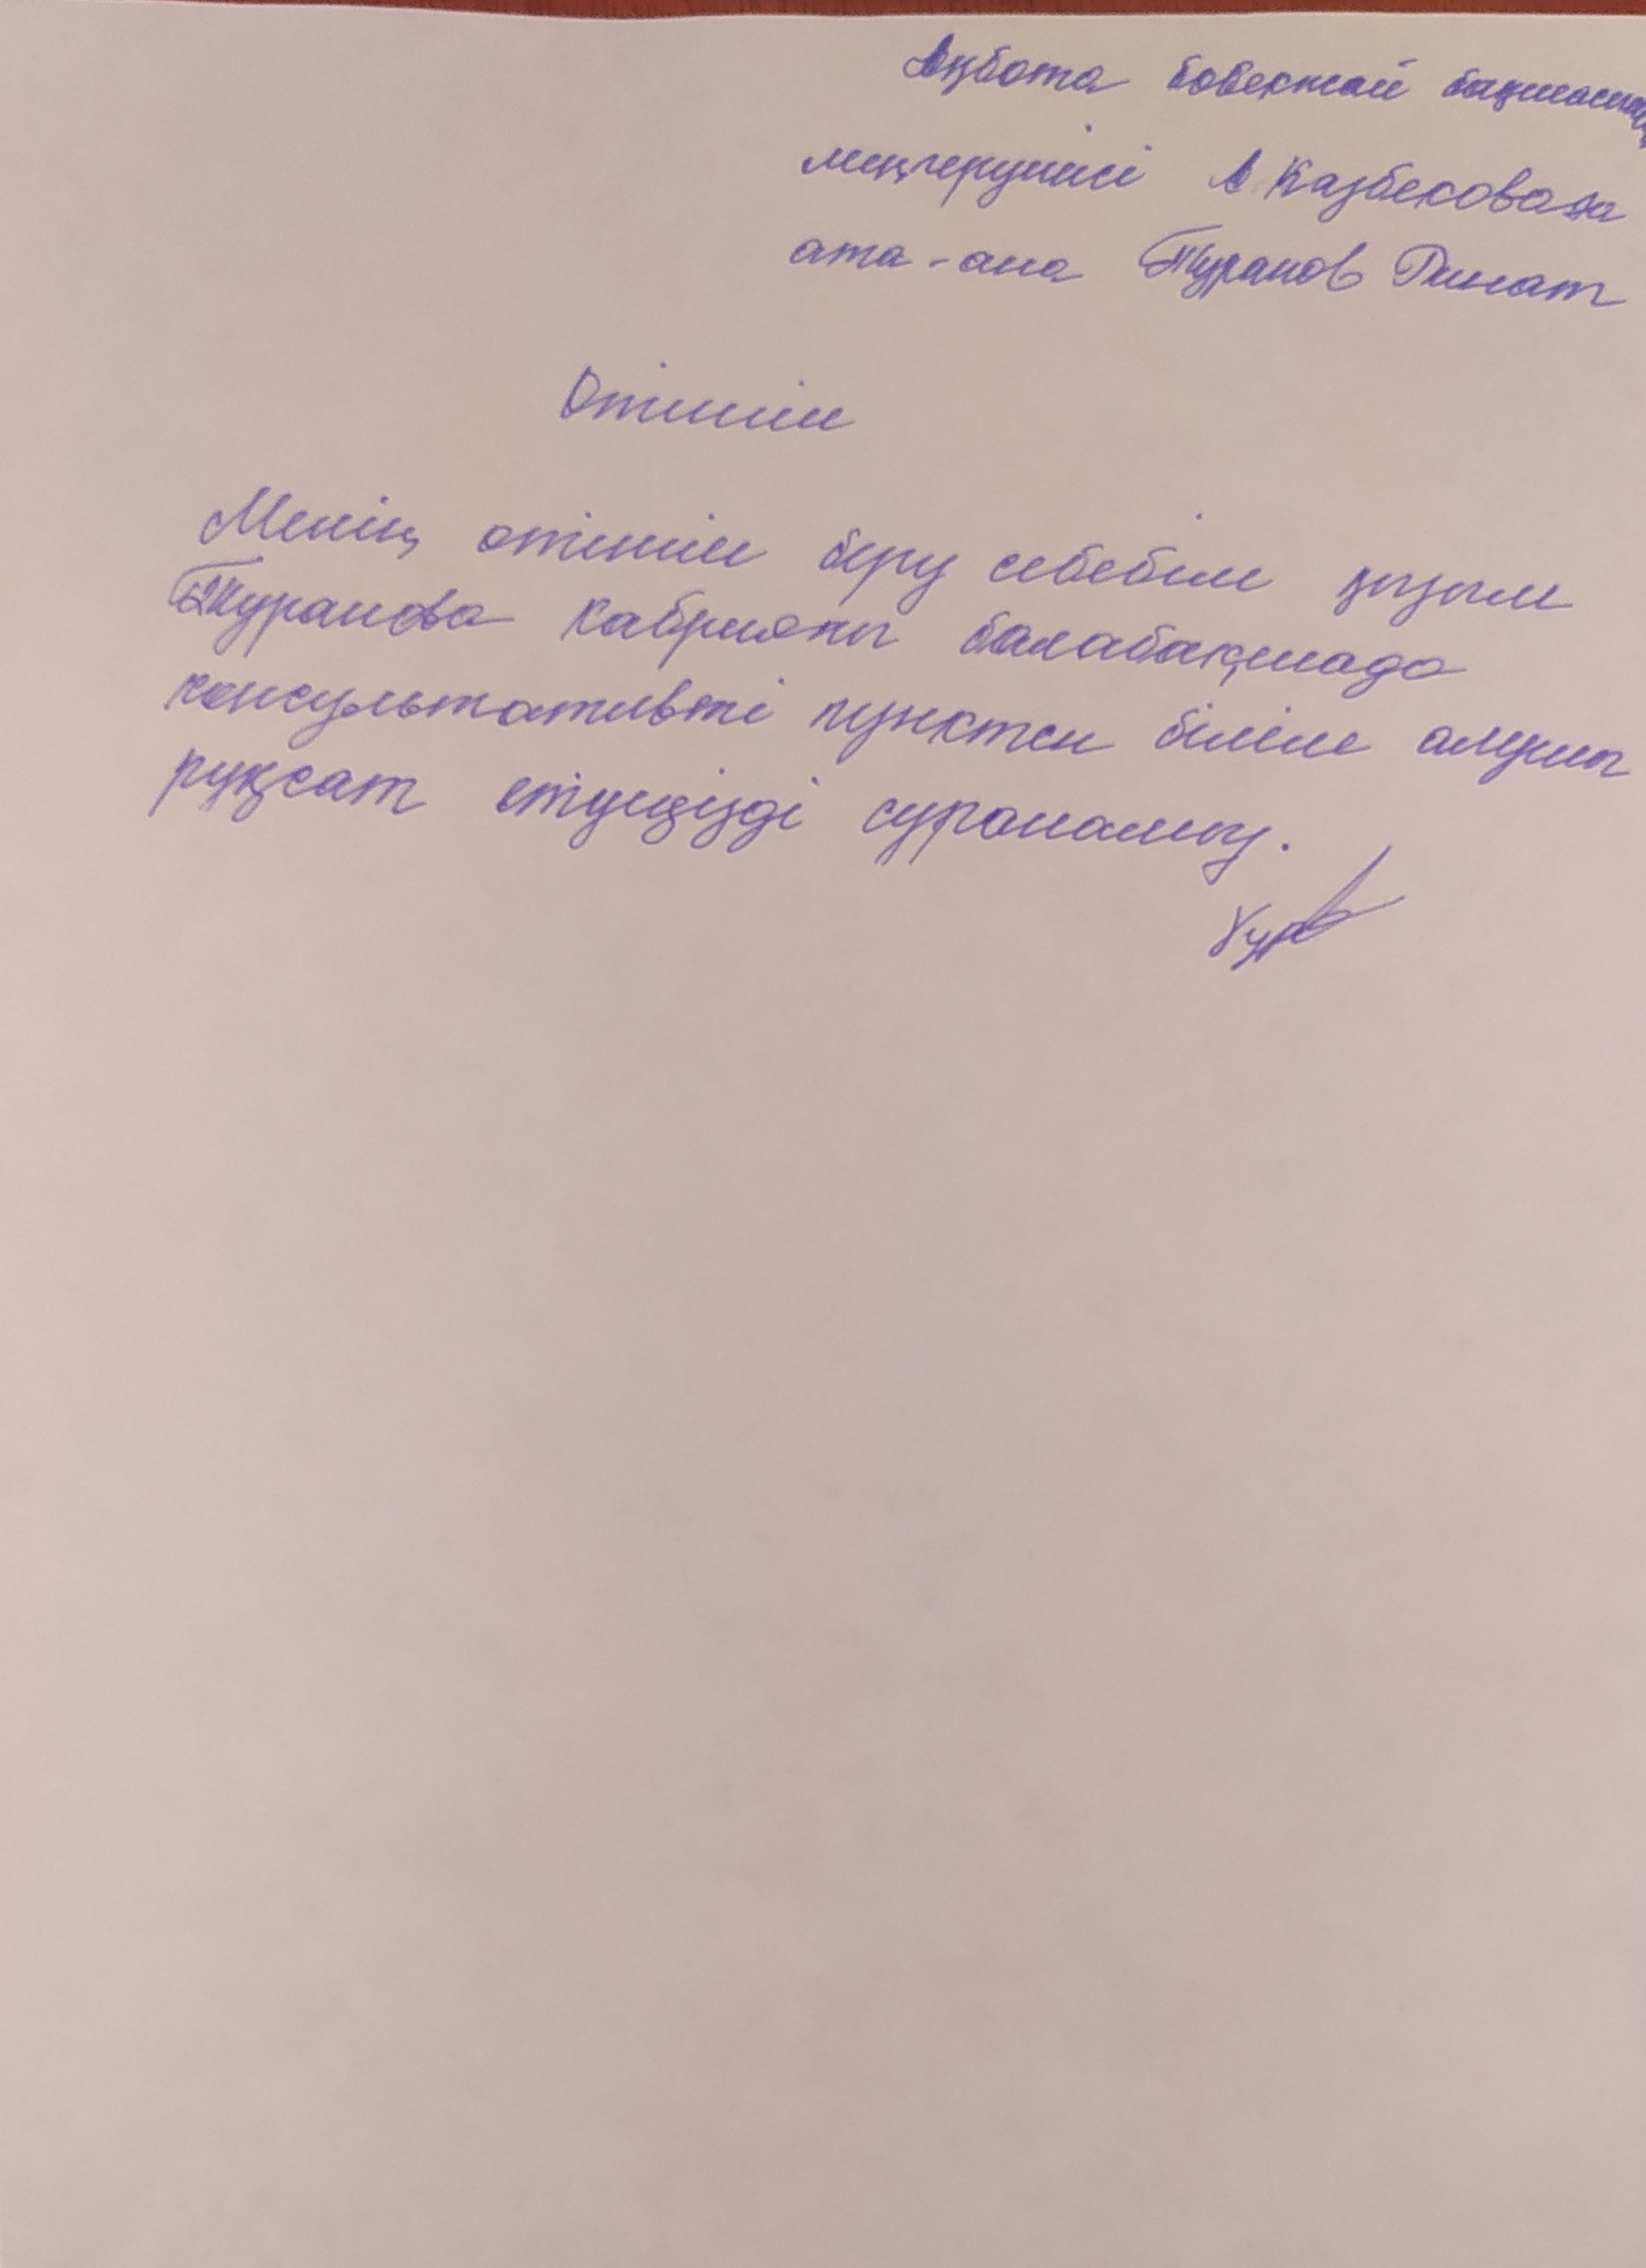 Ақбота бөбекжай бақшасының
меңгерушісі А Казбековаға
ата-ана Туранов Ринат
Өтініш
Менің өтініш беру себебім қызым
Туранова Кабрияны балабақшада
консультативті пунктен білім алуына
рұқсат етуіңізді сұранамыз.